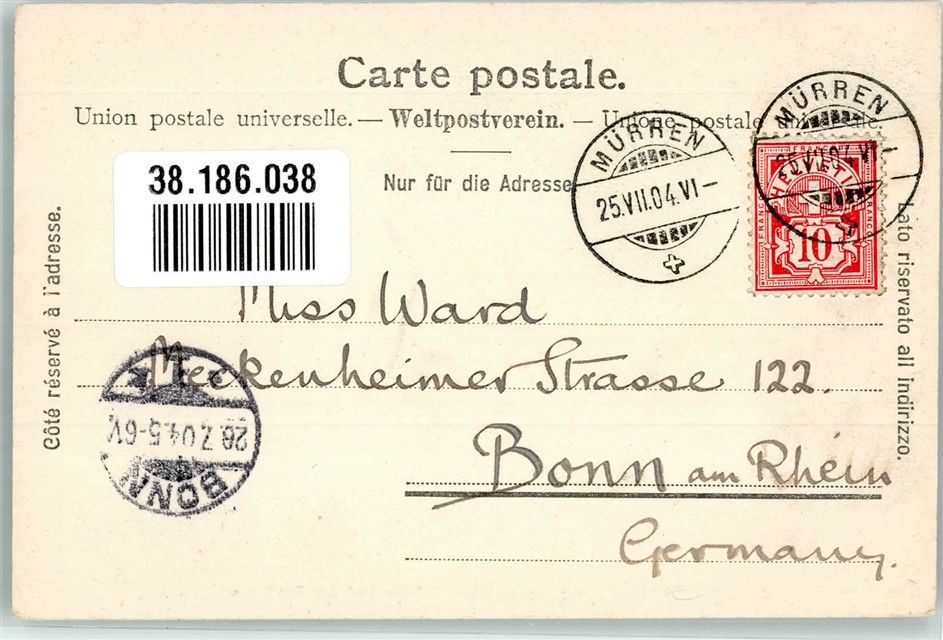 Carte postale.
Union postale universelle. — Weltpostverein. — Unione postale universale.
Nur für die Adresse
38.186.038
MÜRREN
25.VII.04.VI—
MÜRREN
25.VII.04.VI—
FRANCO
HELVETIA
FRANCO
FRANCO
10
Côté réservé à l'adresse.
Lato riservato all indirizzo.
Miss Ward
Meckenheimer Strasse 122.
Bonn am Rhein
Germany.
BONN
26.7.04.5-6V.